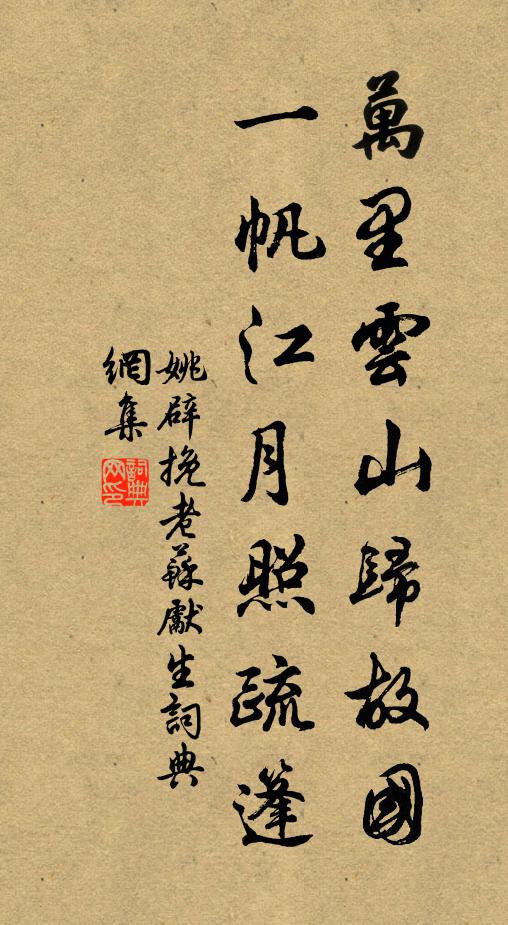 萬里雲山歸故國
一帆江月照疏篷
姚辟挽老蘇獻生詞典
網集
詞典
网印